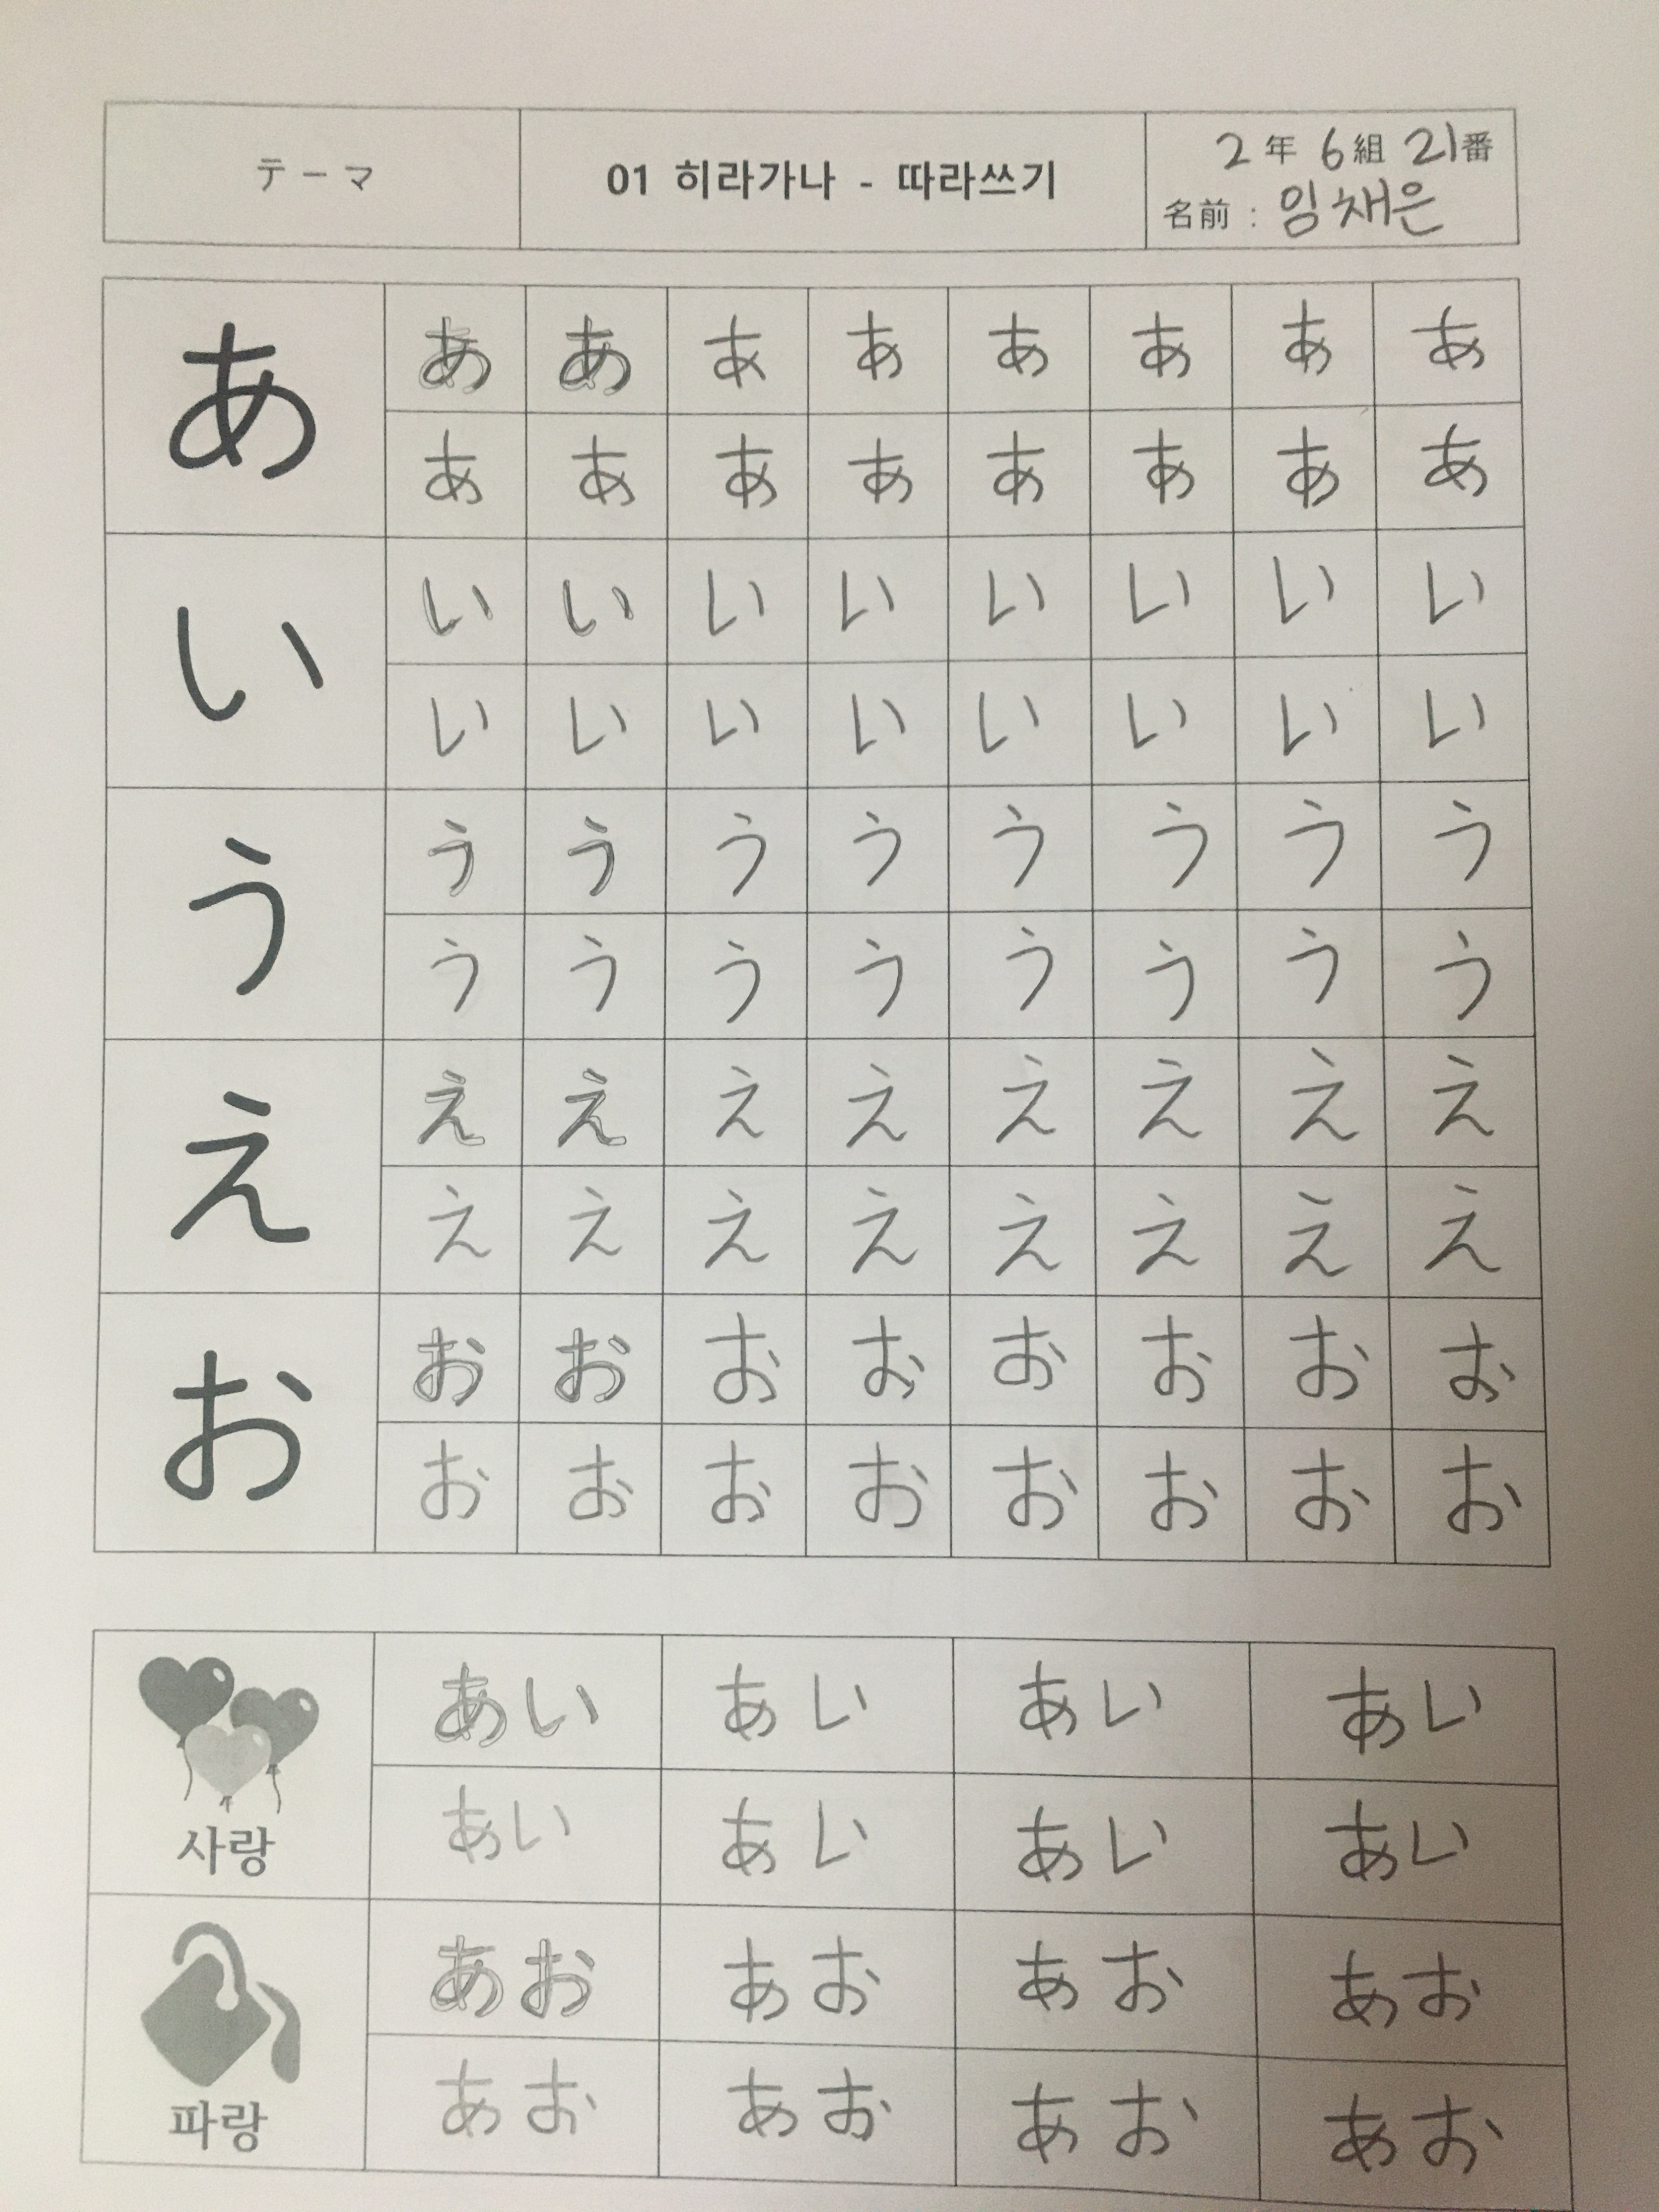 テーマ
01 히라가나 - 따라쓰기
2年 6組 21番
名前 : 임채은
あ
あ あ あ あ あ あ あ あ
あ あ あ あ あ あ あ あ
い
い い い い い い い い
い い い い い い い い
う
う う う う う う う う
う う う う う う う う
え
え え え え え え え え
え え え え え え え え
お
お お お お お お お お
お お お お お お お お
사랑
あい あい あい あい
あい あい あい あい
파랑
あお あお あお あお
あお あお あお あお